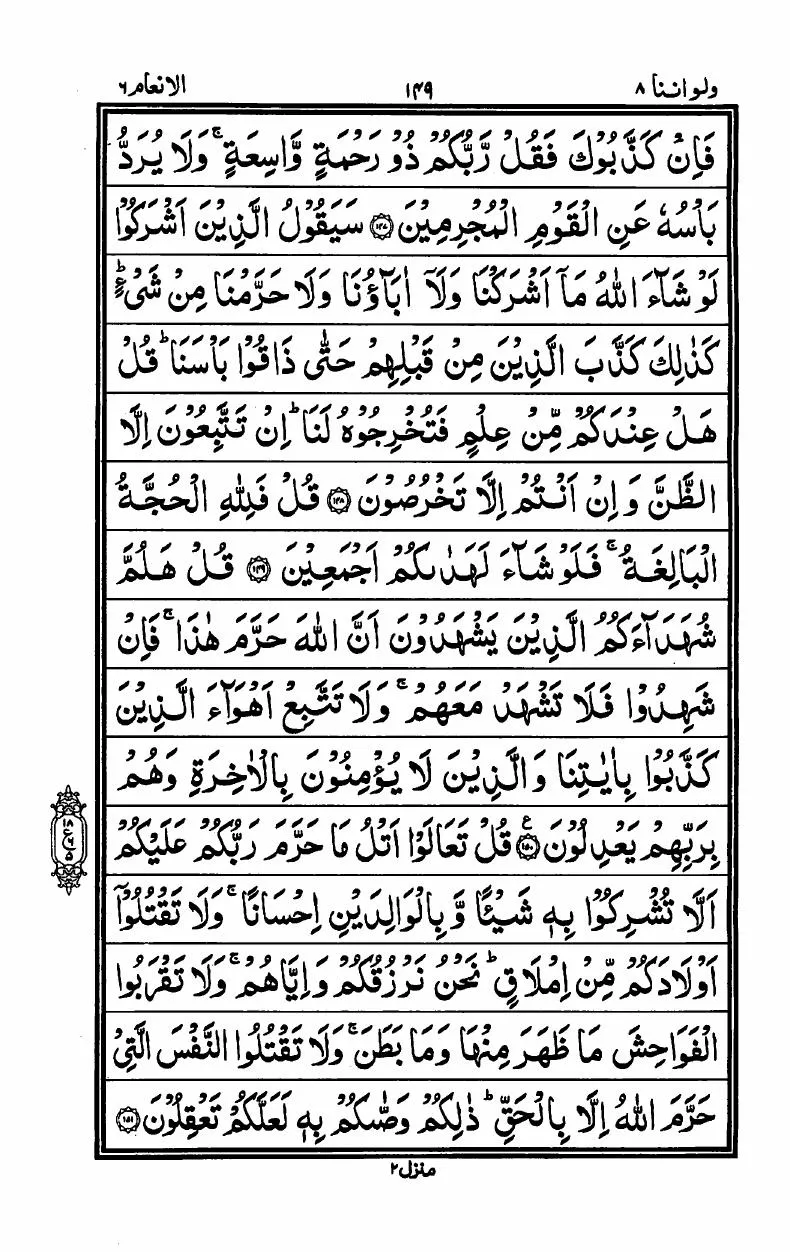 ولواننا ٨ ١٤٩ الانعام ٦
فَاِنْ كَذَّبُوْكَ فَقُلْ رَّبُّكُمْ ذُوْ رَحْمَةٍ وَّاسِعَةٍ ۚ وَلَا يُرَدُّ
بَاْسُهٗ عَنِ الْقَوْمِ الْمُجْرِمِيْنَ ﴿۱۴۷﴾ سَيَقُوْلُ الَّذِيْنَ اَشْرَكُوْا
لَوْ شَآءَ اللّٰهُ مَاۤ اَشْرَكْنَا وَلَاۤ اٰبَآؤُنَا وَلَا حَرَّمْنَا مِنْ شَيْءٍ ؕ
كَذٰلِكَ كَذَّبَ الَّذِيْنَ مِنْ قَبْلِهِمْ حَتّٰى ذَاقُوْا بَاْسَنَا ؕ قُلْ
هَلْ عِنْدَكُمْ مِّنْ عِلْمٍ فَتُخْرِجُوْهُ لَنَا ؕ اِنْ تَتَّبِعُوْنَ اِلَّا
الظَّنَّ وَاِنْ اَنْتُمْ اِلَّا تَخْرُصُوْنَ ﴿۱۴۸﴾ قُلْ فَلِلّٰهِ الْحُجَّةُ
الْبَالِغَةُ ۚ فَلَوْ شَآءَ لَهَدٰىكُمْ اَجْمَعِيْنَ ﴿۱۴۹﴾ قُلْ هَلُمَّ
شُهَدَآءَكُمُ الَّذِيْنَ يَشْهَدُوْنَ اَنَّ اللّٰهَ حَرَّمَ هٰذَا ۚ فَاِنْ
شَهِدُوْا فَلَا تَشْهَدْ مَعَهُمْ ۚ وَلَا تَتَّبِعْ اَهْوَآءَ الَّذِيْنَ
كَذَّبُوْا بِاٰيٰتِنَا وَالَّذِيْنَ لَا يُؤْمِنُوْنَ بِالْاٰخِرَةِ وَهُمْ
بِرَبِّهِمْ يَعْدِلُوْنَ ﴿۱۵۰﴾ ع قُلْ تَعَالَوْا اَتْلُ مَا حَرَّمَ رَبُّكُمْ عَلَيْكُمْ
١٨ ع ٦ ٥
اَلَّا تُشْرِكُوْا بِهٖ شَيْـًٔا وَّبِالْوَالِدَيْنِ اِحْسَانًا ۚ وَلَا تَقْتُلُوْۤا
اَوْلَادَكُمْ مِّنْ اِمْلَاقٍ ؕ نَحْنُ نَرْزُقُكُمْ وَاِيَّاهُمْ ۚ وَلَا تَقْرَبُوا
الْفَوَاحِشَ مَا ظَهَرَ مِنْهَا وَمَا بَطَنَ ۚ وَلَا تَقْتُلُوا النَّفْسَ الَّتِيْ
حَرَّمَ اللّٰهُ اِلَّا بِالْحَقِّ ؕ ذٰلِكُمْ وَصّٰىكُمْ بِهٖ لَعَلَّكُمْ تَعْقِلُوْنَ ﴿۱۵۱﴾
منزل ٢